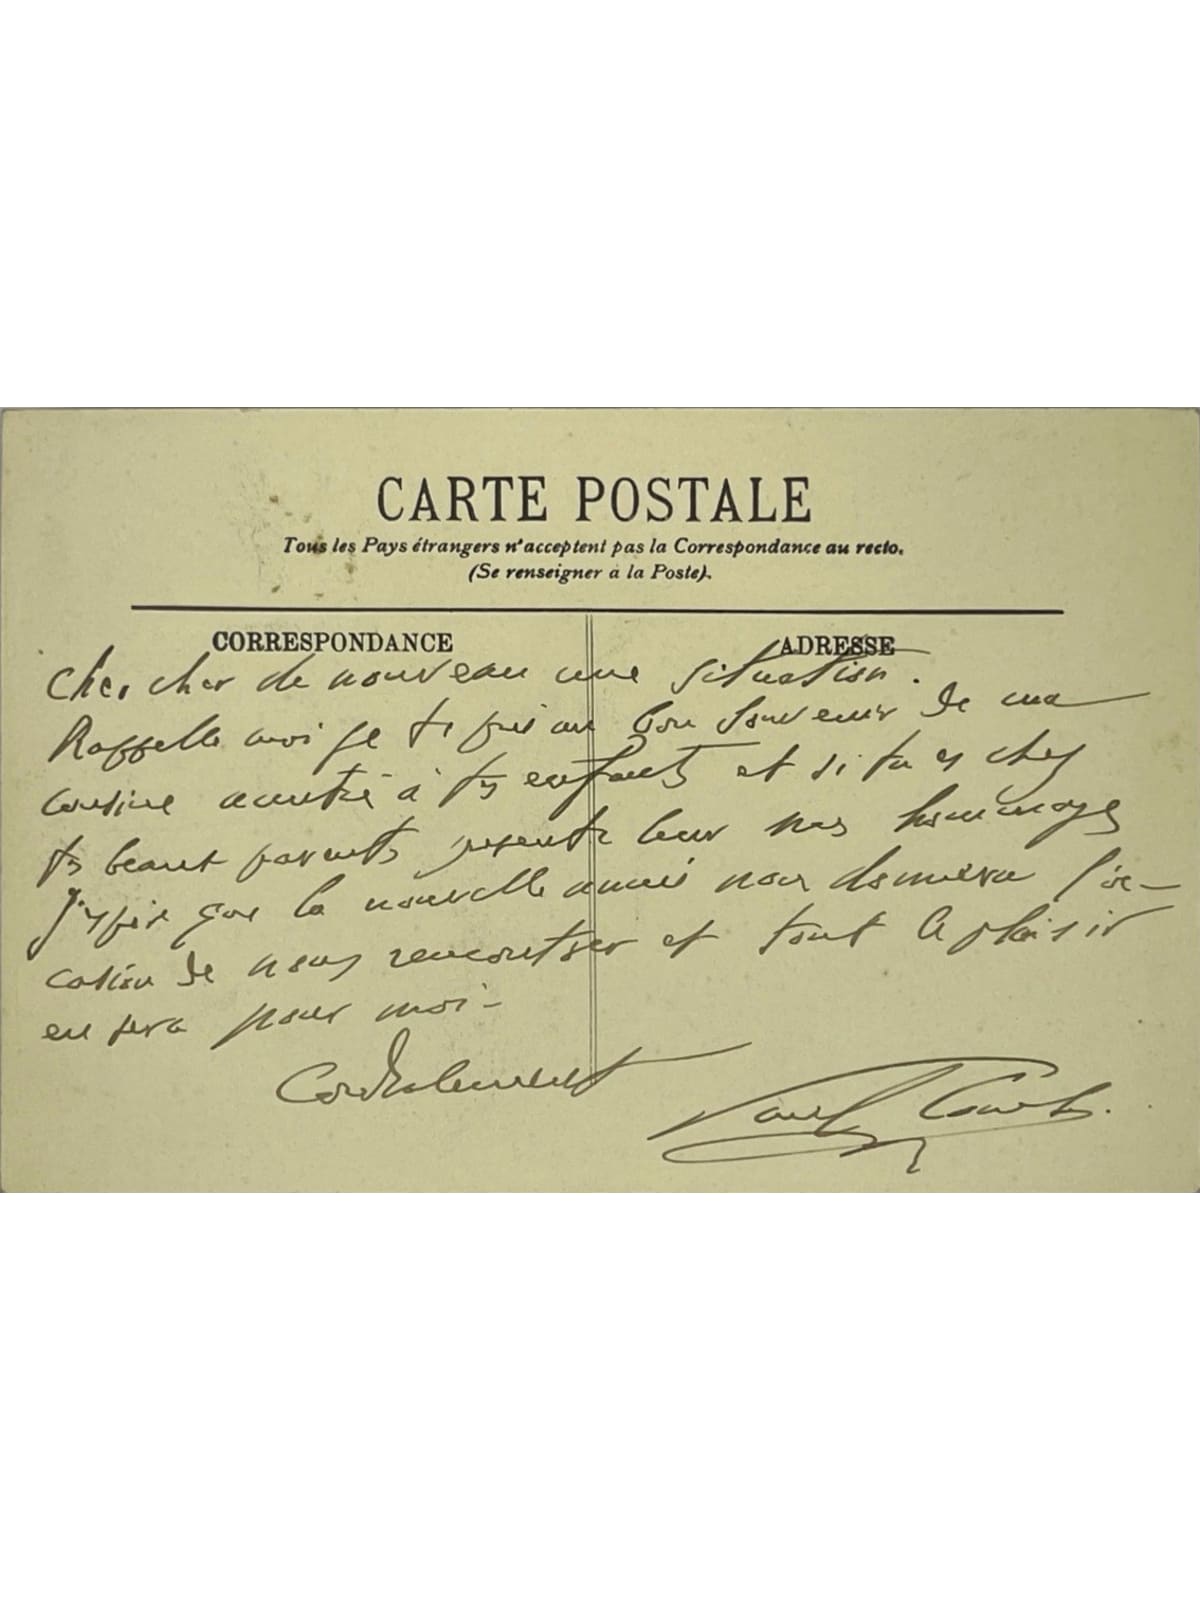 CARTE POSTALE
Tous les Pays étrangers n'acceptent pas la Correspondance au recto.
(Se renseigner à la Poste).
CORRESPONDANCE
ADRESSE
Chercher de nouveau une situation.
Rappelle moi je te prie au bon souvenir de ma
cousine à tes enfants et si tu es chez
tes beaux parents presente leur nos hommages
J'espère que la nouvelle année nous donnera l'oc-
casion de nous rencontrer et tout le plaisir
en sera pour moi -
Cordialement
Paul